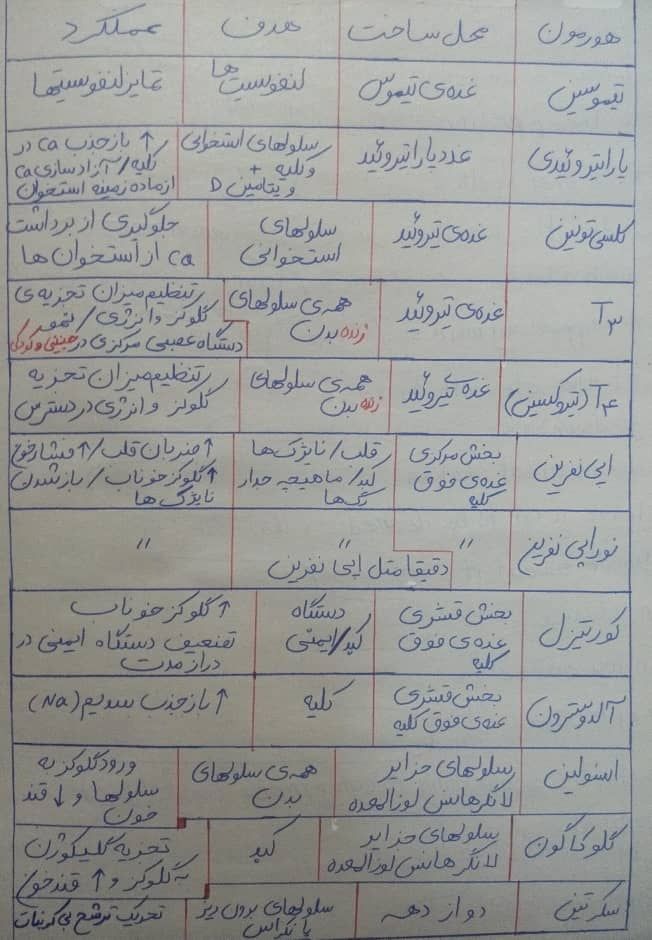 هورمون محل ساخت هدف عملکرد
تیموسین غده‌ی تیموس لنفوسیت‌ها تمایز لنفوسیتها
پاراتیروئیدی غدد پاراتیروئید سلولهای استخوانی و کلیه + ویتامین D ↑ بازجذب Ca در کلیه / آزادسازی Ca از ماده زمینه استخوان
کلسی تونین غده‌ی تیروئید سلولهای استخوانی جلوگیری از برداشت Ca از استخوان ها
T۳ غده‌ی تیروئید همه‌ی سلولهای زنده بدن تنظیم میزان تجزیه‌ی گلوکز و انرژی / نمو دستگاه عصبی مرکزی در جنینی و کودکی
T۴ (تیروکسین) غده‌ی تیروئید همه‌ی سلولهای زنده بدن تنظیم میزان تجزیه گلوکز و انرژی در دسترس
اپی نفرین بخش مرکزی غده‌ی فوق کلیه قلب / نایژک‌ها کبد / ماهیچه جدار رگ‌ها ↑ ضربان قلب / ↑ فشار خون ↑ گلوکز خوناب / باز شدن نایژک ها
نوراپی نفرین " " "
دقیقا مثل اپی نفرین
کورتیزل بخش قشری غده‌ی فوق کلیه دستگاه کبد / ایمنی ↑ گلوکز خوناب تضعیف دستگاه ایمنی در دراز مدت
آلدوسترون بخش قشری غده‌ی فوق کلیه کلیه ↑ بازجذب سدیم (Na)
انسولین سلولهای جزایر لانگرهانس لوزالمعده همه‌ی سلولهای بدن ورود گلوکز به سلولها و ↓ قند خون
گلوکاگون سلولهای جزایر لانگرهانس لوزالمعده کبد تجزیه گلیکوژن به گلوکز و ↑ قند خون
سکرتین دوازدهه سلولهای برون ریز پانکراس تحریک ترشح بی کربنات